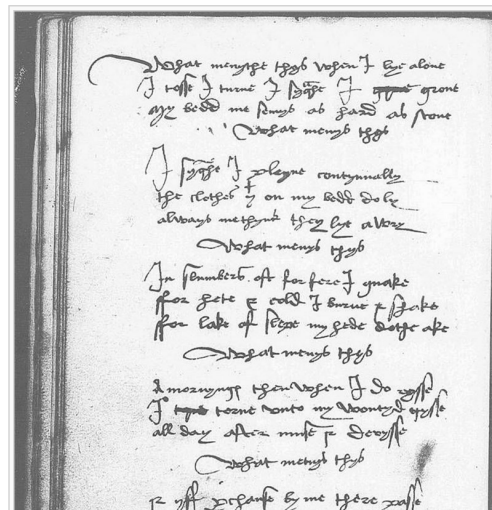 What menythe thys when I lye alone
I tosse I turne I syghe I grone
My bedd me semys as hard as stone
What menys thys
I syghe I pleyne contynually
the clothes yt on my bedd do ly
always methynk they lye awry
What menys thys
In slumbers oft for fere I quake
ffor hete & cold I burne & shake
ffor lake of slepe my hede dothe ake
What menys thys
A mornyngs then when I do rysse
I torne unto my wontyd gysse
all day after muse & devysse
What menys thys
& yff perchanse by me there passe